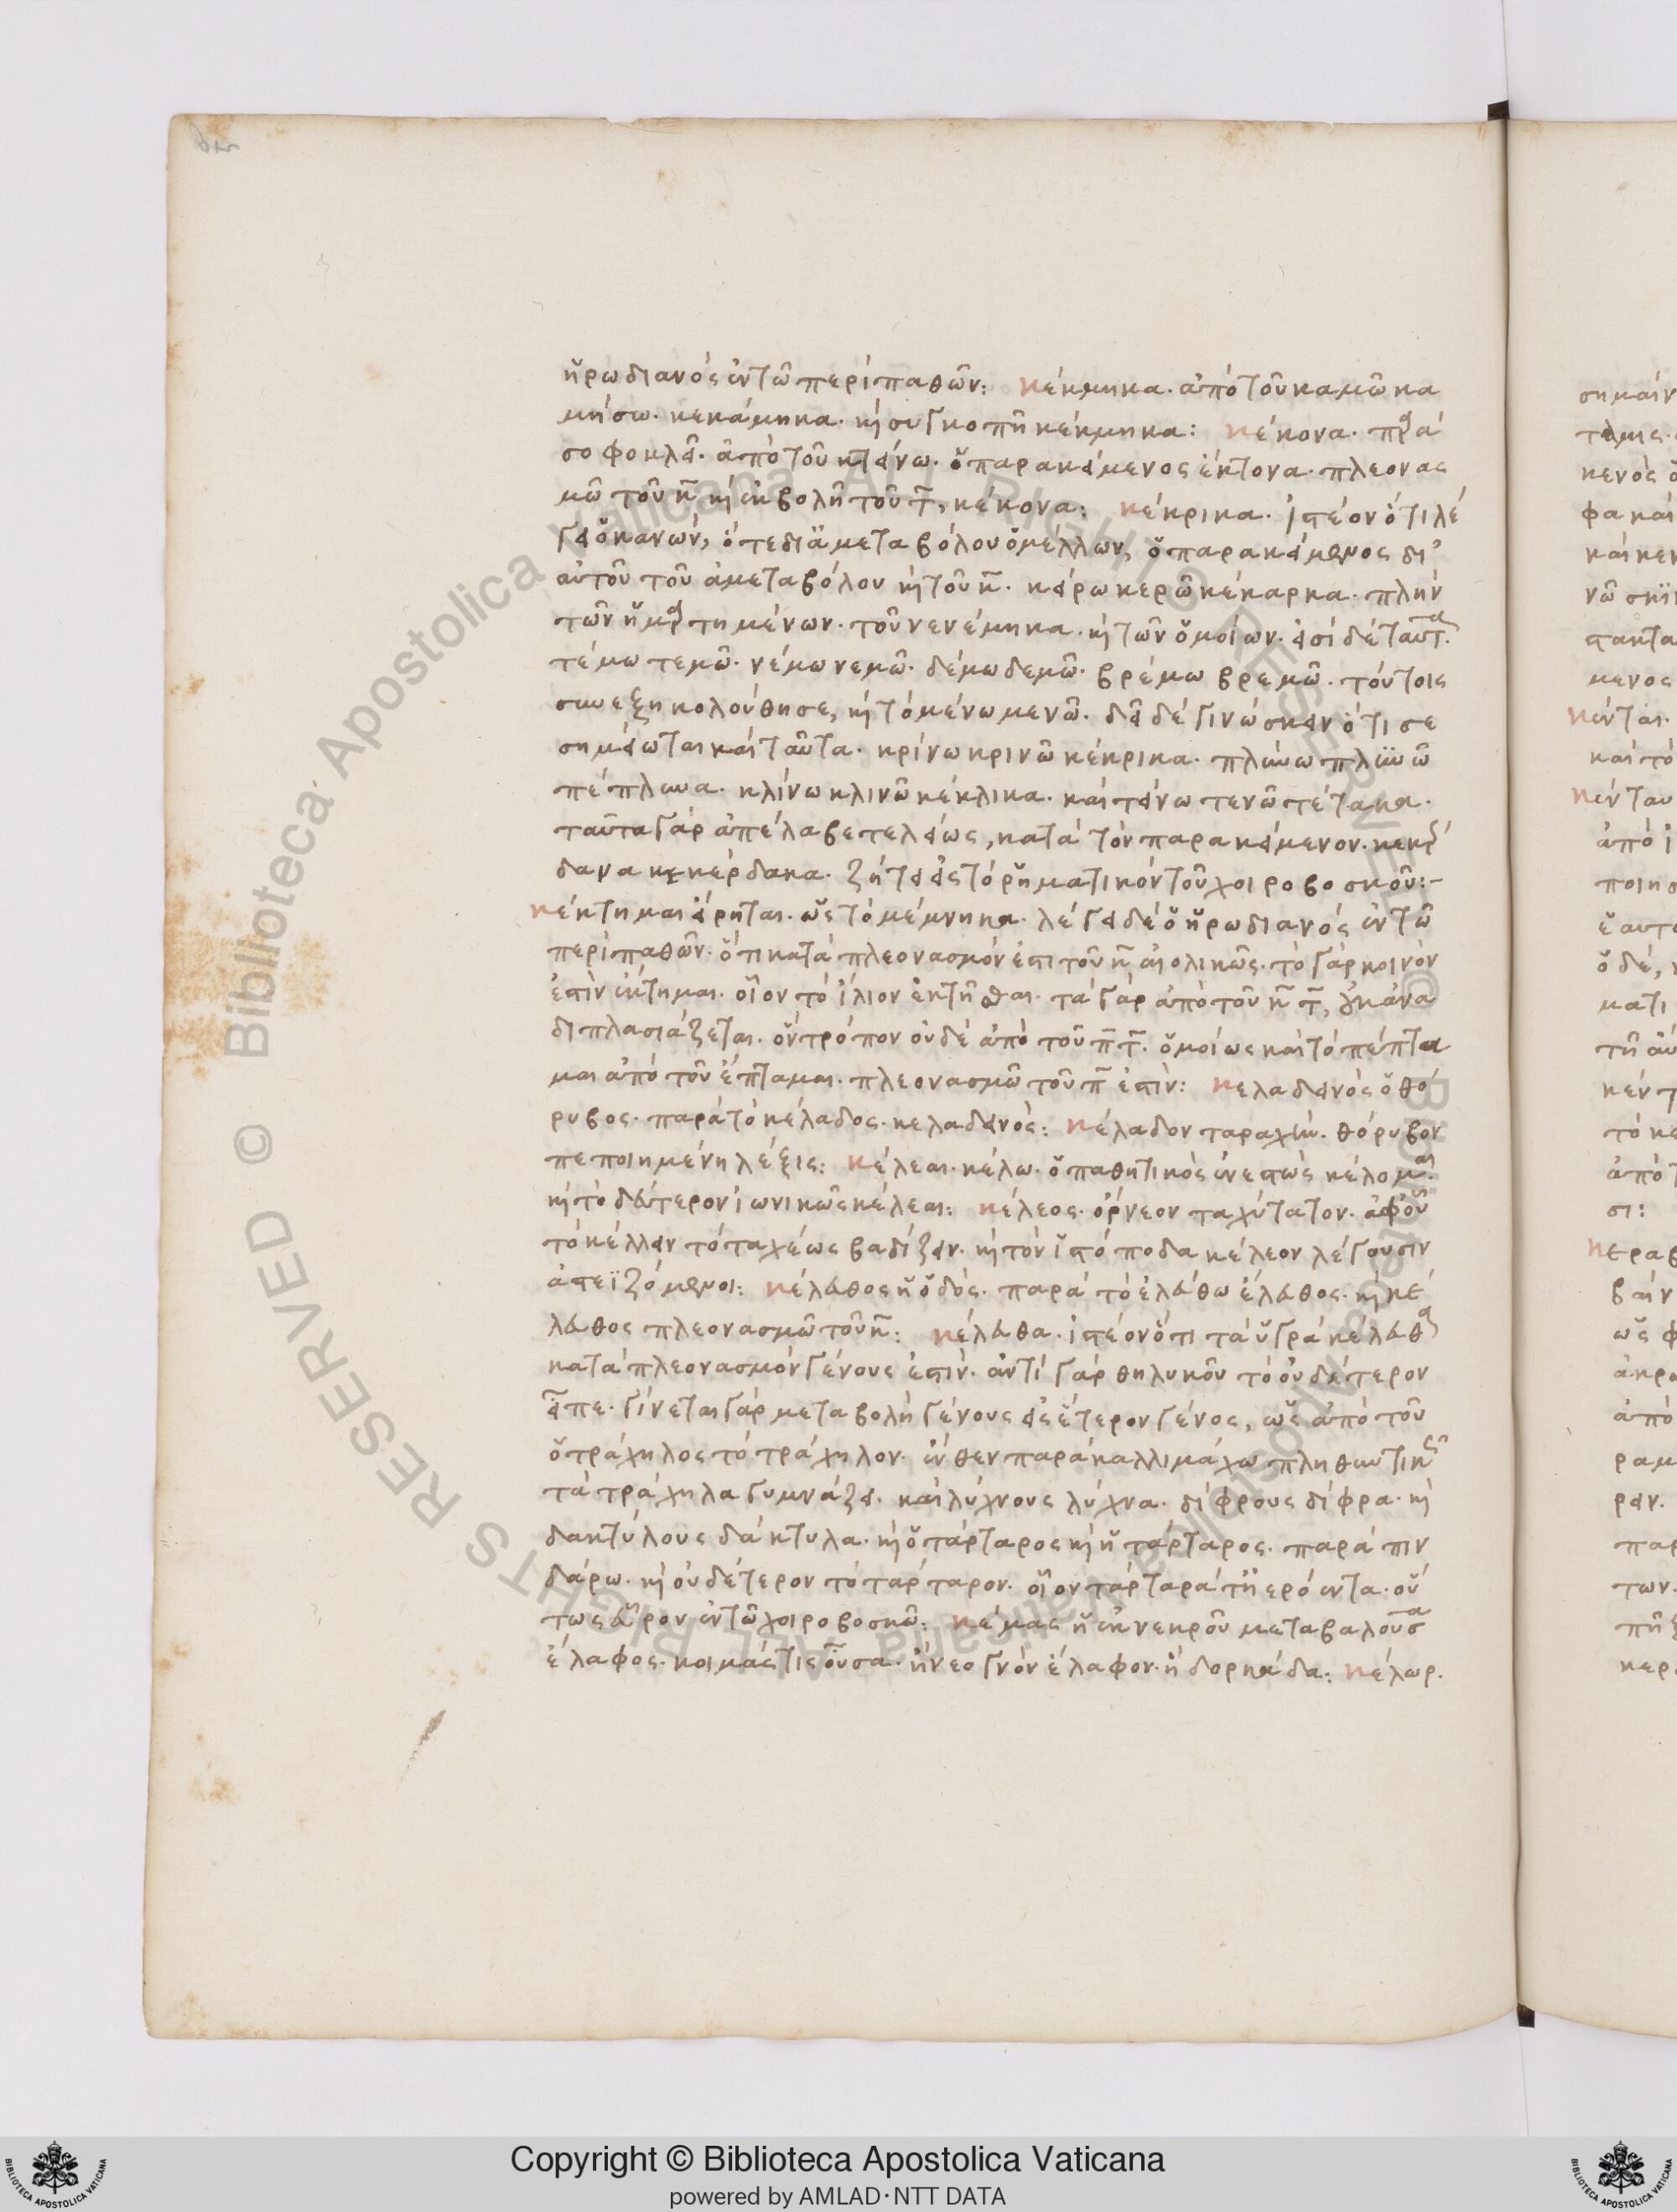 ἡρωδιανός ἐν τῶ περί παθῶν: κέκμηκα. ἀπό τοῦ καμῶ κα
μήσω. κεκάμηκα. καὶ συγκοπῆ κέκμηκα: κέκονα. παρά
σοφοκλεῖ. ἀπὸ τοῦ κτείνω. ὁ παρακείμενος ἔκτονα. πλεονας
μῶ τοῦ κ̅ καὶ ἐκβολῆ τοῦ τ̅, κέκονα: κέκρικα. ἰστέον ὅτι λέ
γει ὁ κανών, ὅτε διἀμεταβόλου ὁ μέλλων, ὁ παρακείμενος δι'
αὐτοῦ τοῦ ἀμεταβόλου καὶ τοῦ κ̅. κείρω κερῶ κέκαρκα. πλήν
τῶν ἡμαρτημένων. τοῦ νενέμηκα. καὶ τῶν ὁμοίων. εἰσί δέ ταῦτα.
τέμω τεμῶ. νέμω νεμῶ. δέμω δεμῶ. βρέμω βρεμῶ. τούτοις
συνεξηκολούθησε, καὶ τό μένω μενῶ. δεῖ δέ γινώσκειν ὅτι σε
σημείωται καί ταῦτα. κρίνω κρινῶ κέκρικα. πλύνω πλυνῶ
πέπλυκα. κλίνω κλινῶ κέκλικα. καί τείνω τενῶ τέτακα.
ταῦτα γάρ ἀπέλαβε τελείως, κατά τόν παρακείμενον.
δανα κεκέρδακα. ζήτει εἰς τό ῥηματικόν τοῦ χοιροβοσκοῦ:-
κέκτημαι εἴρηται. ὡς τό μέμνημαι. λέγει δέ ὁ ἡρωδιανός ἐν τῶ
περί παθῶν. ὅτι κατά πλεονασμόν ἐστι τοῦ κ̅ αἰολικῶς. τό γάρ κοινόν
ἐστίν ἔκτημαι. οἷον τό ἴλιον ἐκτῆσθαι. τά γάρ ἀπό τοῦ κ̅ τ̅, οὐκ ἀνα
διπλασιάζεται. ὅν τρόπον οὐδέ ἀπό τοῦ π̅ τ̅. ὁμοίως καί τό πέπτα
μαι ἀπό τοῦ ἔπταμαι. πλεονασμῶ τοῦ π̅ ἐστίν: κελαδεινός ὁ θό
ρυβος. παρά τό κέλαδος. κελαδεινός: κέλαδον ταραχήν. θόρυβον
πεποιημένη λέξις: κέλεαι. κέλω. ὁ παθητικός ἐνεστώς κέλομαι.
καὶ τό δεύτερον ἰωνικῶς κέλεαι: κέλεος. ὄρνεον ταχύτατον. ἀφ' οὗ
τό κέλλειν τό ταχέως βαδίζειν. καὶ τόν ἱστόποδα κέλεον λέγουσιν
ἀστεϊζόμενοι: κέλευθος ἡ ὁδός. παρά τό ἐλεύθω ἔλευθος. καὶ κέ
λευθος πλεονασμῶ τοῦ κ̅: κέλευθα. ἰστέον ὅτι τά ὑγρά κέλευθα
κατά πλεονασμόν γένους ἐστίν. ἀντί γάρ θηλυκοῦ τό οὐδέτερον
εἶπε. γίνεται γάρ μεταβολή γένους εἰς ἕτερον γένος, ὡς ἀπό τοῦ
ὁ τράχηλος τό τράχηλον. ἔνθεν παρά καλλιμάχω πληθυντικῶς
τά τράχηλα γυμνάζει. καί λύχνους λύχνα. δίφρους δίφρα. καὶ
δακτύλους δάκτυλα. καὶ ὁ τάρταρος καὶ ἡ τάρταρος. παρά πιν
δάρω. καὶ οὐδέτερον τό τάρταρον. οἷον τάρταρά τ' ἠερόεντα. οὕ
τως εὗρον ἐν τῶ χοιροβοσκῶ: κεμάς ἡ ἐκ νεκροῦ μεταβαλοῦσα
ἔλαφος. κοιμάς τις οὖσα. ἢ νεογνόν ἔλαφον. ἢ δορκάδα: κέλωρ.
Copyright © Biblioteca Apostolica Vaticana
powered by AMLAD·NTT DATA